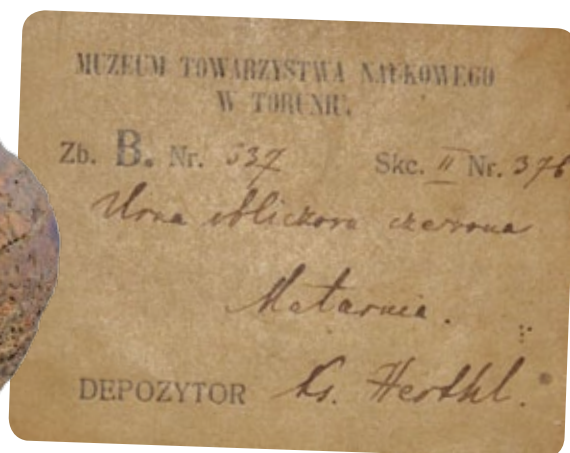 MUZEUM TOWARZYSTWA NAUKOWEGO
W TORUNIU.
Zb. B. Nr. 537 Skc. II Nr. 376
Urna obliczowa czerwona
Matarnia.
DEPOZYTOR Ks.